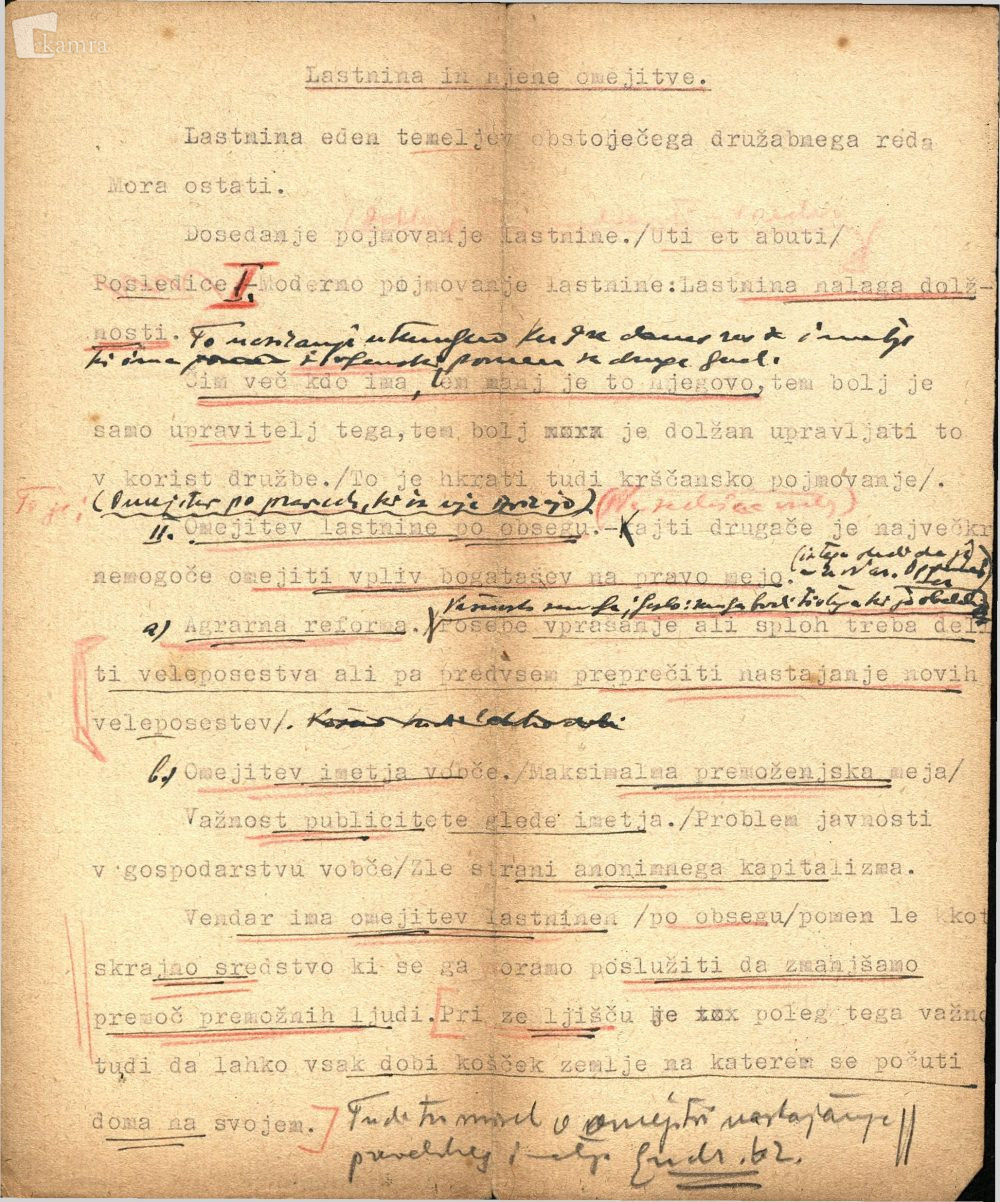 kamra
Lastnina in njene omejitve.
Lastnina eden temeljev obstoječega družabnega reda
Mora ostati.
Dosedanje pojmovanje lastnine./Uti et abuti/
Posledice I. Moderno pojmovanje lastnine:Lastnina nalaga dolž-
nosti. To
ki ima pomen za druge ljudi.
Čim več kdo ima, tem manj je to njegovo, tem bolj je
samo upravitelj tega,tem bolj je dolžan upravljati to
v korist družbe./To je hkrati tudi krščansko pojmovanje/.
To je: (Omejitev po pravicah, ki iz nje izvirajo)
II. Omejitev lastnine po obsegu.-Kajti drugače je največkr
nemogoče omejiti vpliv bogatašev na pravo mejo.
a) Agrarna reforma. Posebe vprašanje ali sploh treba deli
ti veleposestva ali pa predvsem preprečiti nastajanje novih
veleposestev/.
b) Omejitev imetja vobče./Maksimalma premoženjska meja/
Važnost publicitete glede imetja./Problem javnosti
v gospodarstvu vobče/Zle strani anonimnega kapitalizma.
Vendar ima omejitev lastninen /po obsegu/pomen le kkot
skrajno sredstvo ki se ga moramo poslužiti da zmanjšamo
premoč premožnih ljudi.[Pri ze ljišču je poleg tega važno
tudi da lahko vsak dobi košček zemlje na katerem se počuti
doma na svojem.] Tudi tu misel o omejitvi nastajanja
prevelikega imetja